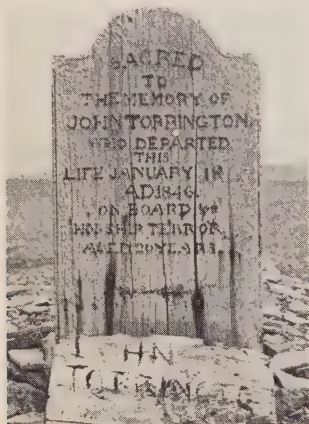 SACRED
TO
THE MEMORY OF
JOHN TORRINGTON
WHO DEPARTED
THIS
LIFE JANUARY 1
AD 1846
ON BOARD
HM SHIP TERROR
AGED 20 YEARS
HN
TORRIN